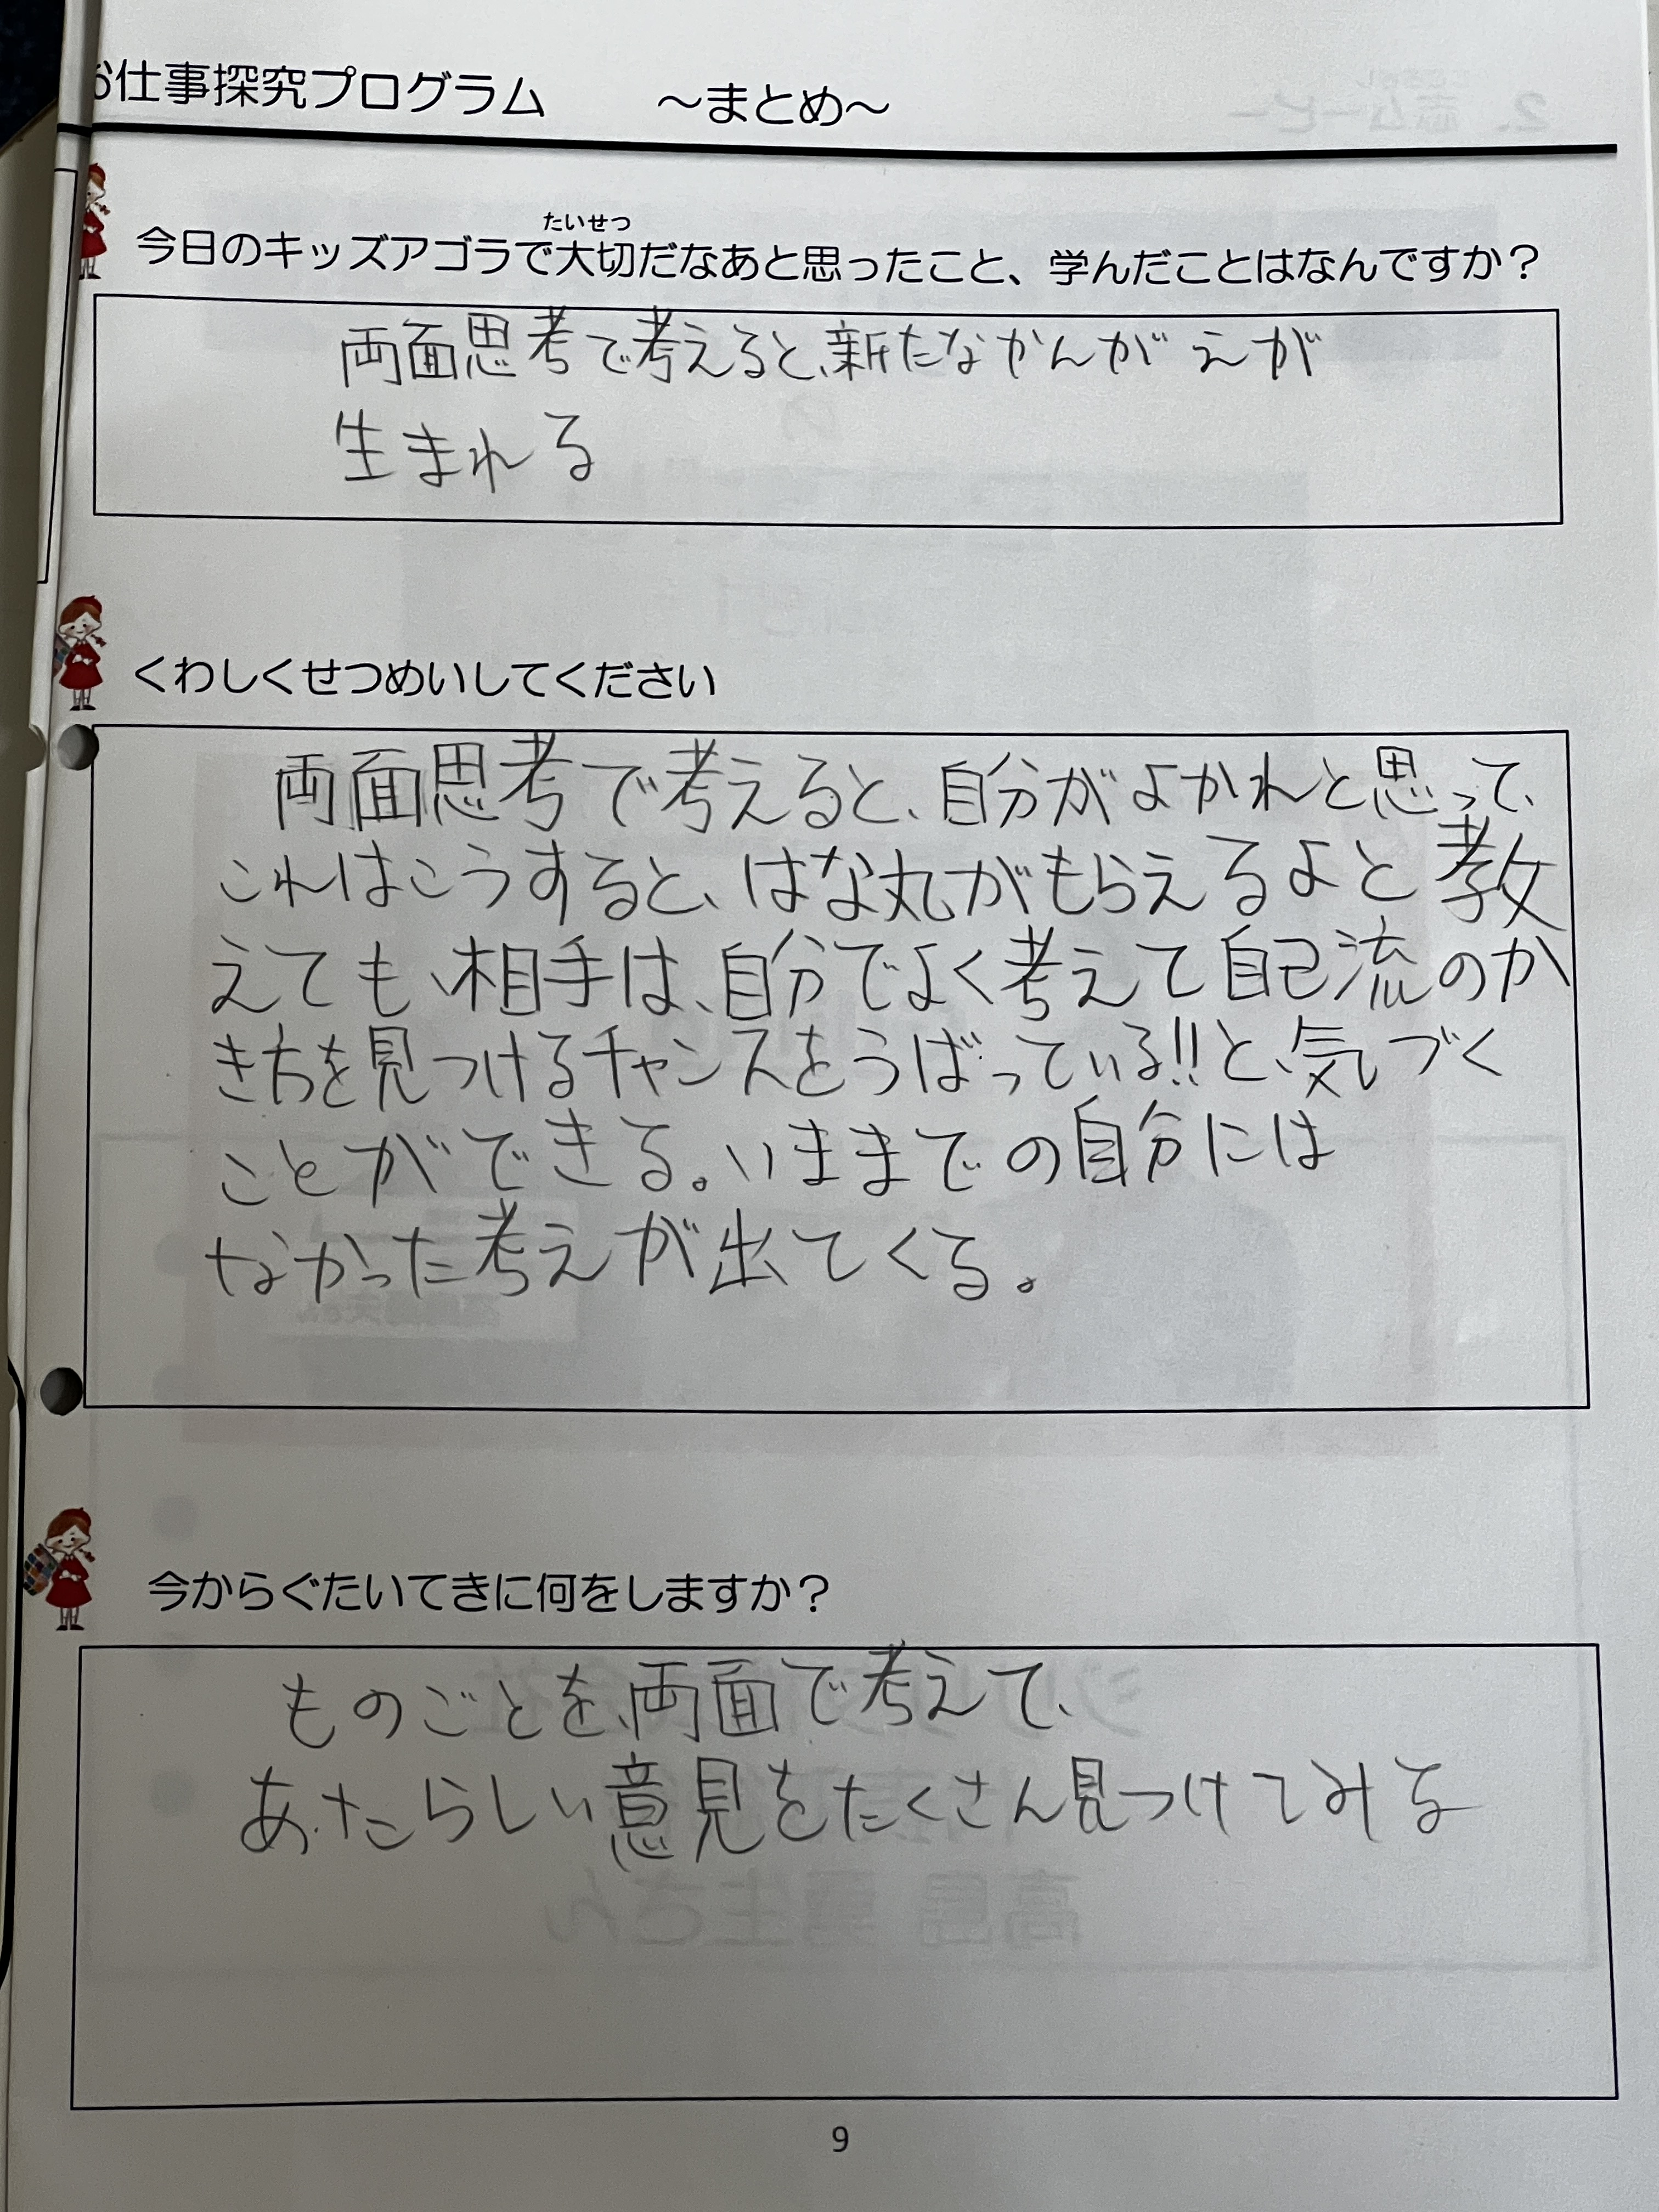 お仕事探究プログラム　　～まとめ～
たいせつ
今日のキッズアゴラで大切だなあと思ったこと、学んだことはなんですか？
両面思考で考えると、新たなかんがえが
生まれる
くわしくせつめいしてください
両面思考で考えると、自分がよかれと思って、
これはこうすると、はな丸がもらえるよと教
えても、相手は、自分でよく考えて自己流のか
き方を見つけるチャンスをうばっている!!と、気づく
ことができる。いままでの自分には
なかった考えが出てくる。
今からぐたいてきに何をしますか？
ものごとを、両面で考えて、
あたらしい意見をたくさん見つけてみる
9